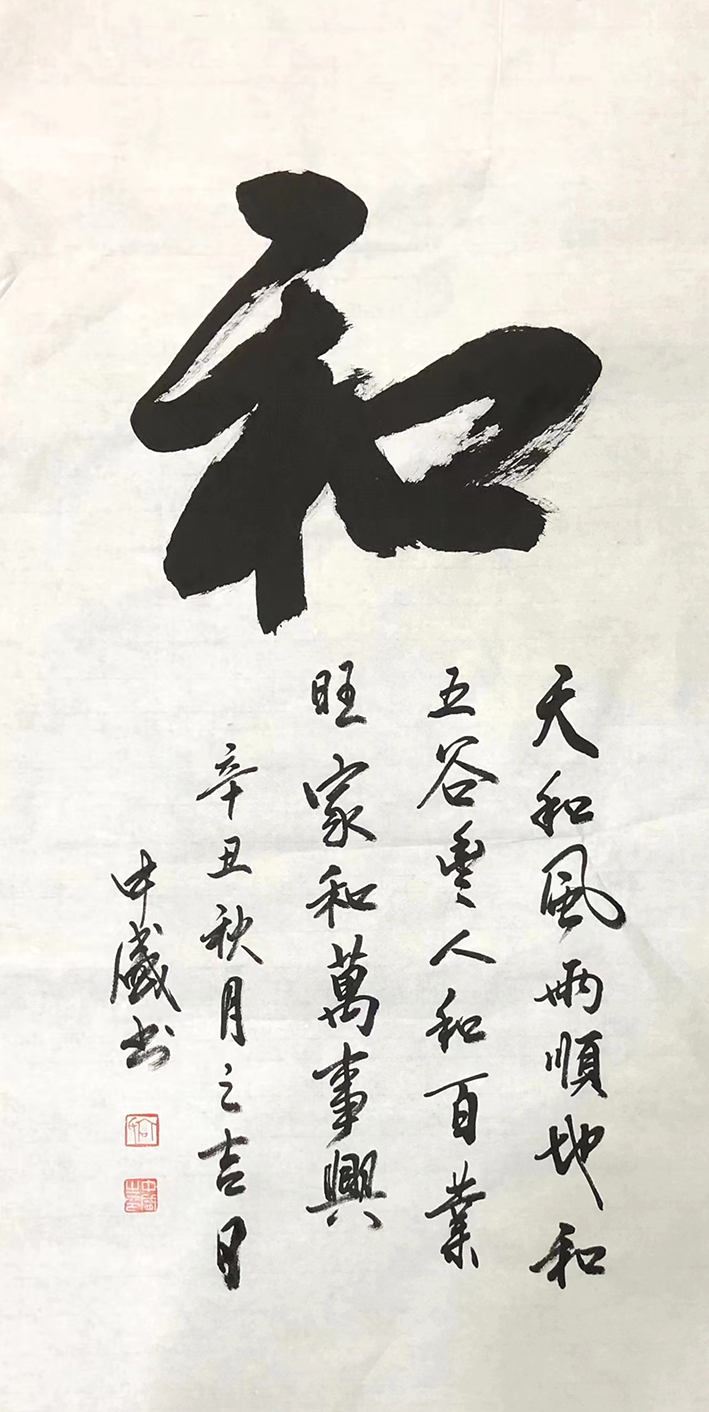 和
天和風雨順地和
五谷豐人和百業
旺家和萬事興
辛丑秋月之吉日
中盛书